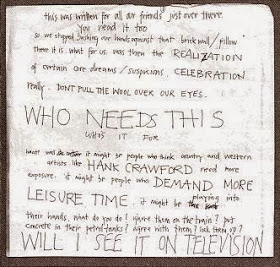 this was written for all our friends just over there.
you need it too
so we stopped bashing our heads against that brick wall / pillow
there it is. what for us was then the REALIZATION
of certain core dreams / suspicions CELEBRATION.
really. DON'T PULL THE WOOL OVER OUR EYES.
WHO NEEDS THIS
WHO'S IT FOR
it might be people who think country and western
artists like HANK CRAWFORD need more
exposure. it might be people who DEMAND MORE
LEISURE TIME. it might be playing into
their hands. what do you do? ignore them on the train? put
concrete in their petrol tanks? agree with them? lock them up?
WILL I SEE IT ON TELEVISION